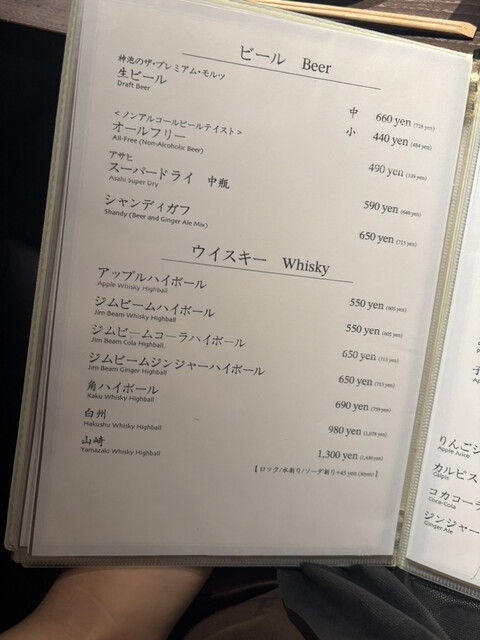 ビール Beer
神泡のザ・プレミアム・モルツ
生ビール
Draft Beer
中 660 yen (726 yen)
小 440 yen (484 yen)
<ノンアルコールビールテイスト>
オールフリー
All-Free (Non-Alcoholic Beer)
490 yen (539 yen)
アサヒ
スーパードライ 中瓶
Asahi Super Dry
590 yen
シャンディガフ
Shandy (Beer and Ginger Ale Mix)
650 yen (715 yen)
ウイスキー Whisky
アップルハイボール
Apple Whisky Highball
550 yen (605 yen)
ジムビームハイボール
Jim Beam Whisky Highball
550 yen (605 yen)
ジムビームコーラハイボール
Jim Beam Cola Highball
650 yen (715 yen)
ジムビームジンジャーハイボール
Jim Beam Ginger Highball
650 yen (715 yen)
角ハイボール
Kaku Whisky Highball
690 yen (759 yen)
白州
Hakushu Whisky Highball
980 yen (1,078 yen)
山崎
Yamazaki Whisky Highball
1,300 yen (1,430 yen)
【ロック/水割り/ソーダ割り+45 yen (50yen)】
りんごジ
Apple Juice
カルピス
Calpis
コカコーラ
Coca-Cola
ジンジャー
Ginger Ale